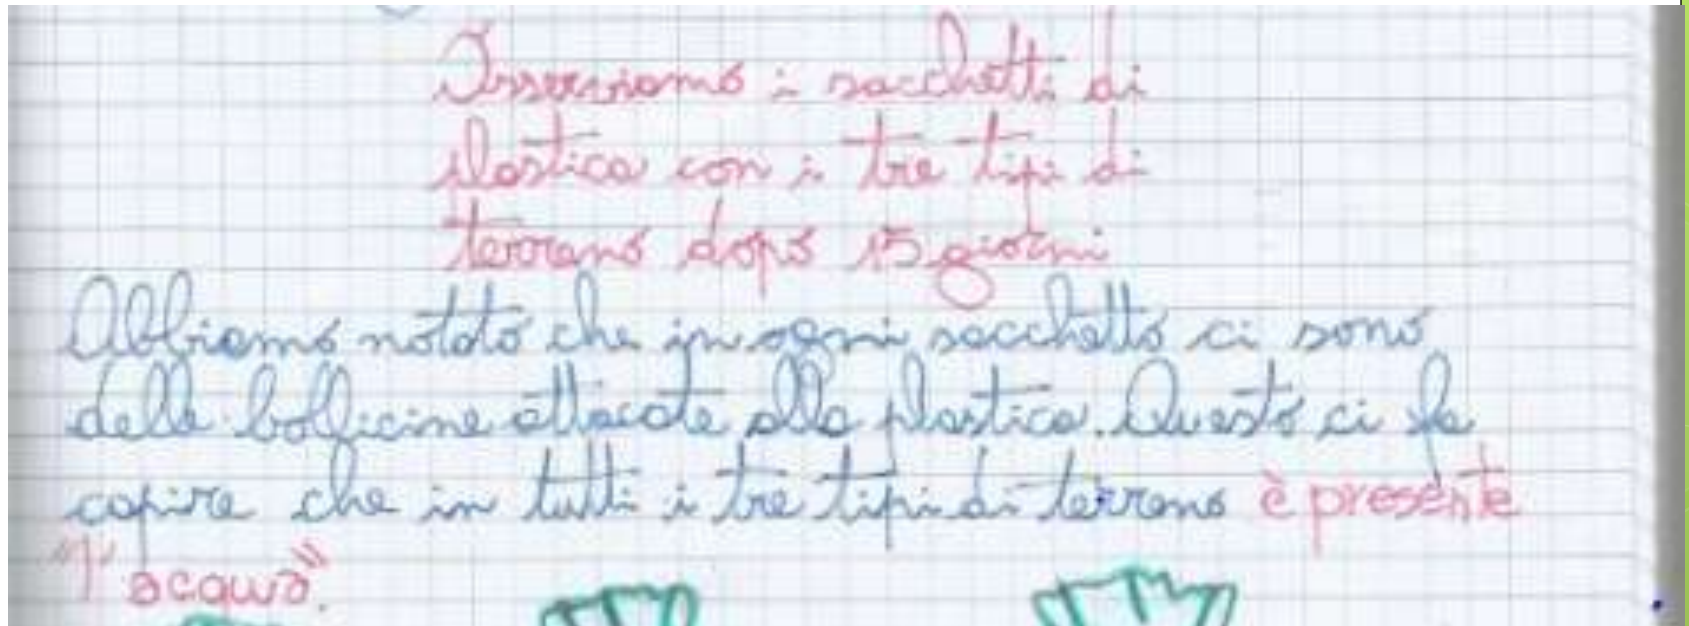 Osserviamo i sacchetti di
plastica con i tre tipi di
terreno dopo 15 giorni
Abbiamo notato che in ogni sacchetto ci sono
delle bollicine attaccate alla plastica. Questo ci fa
capire che in tutti i tre tipi di terreno è presente
"l'acqua".